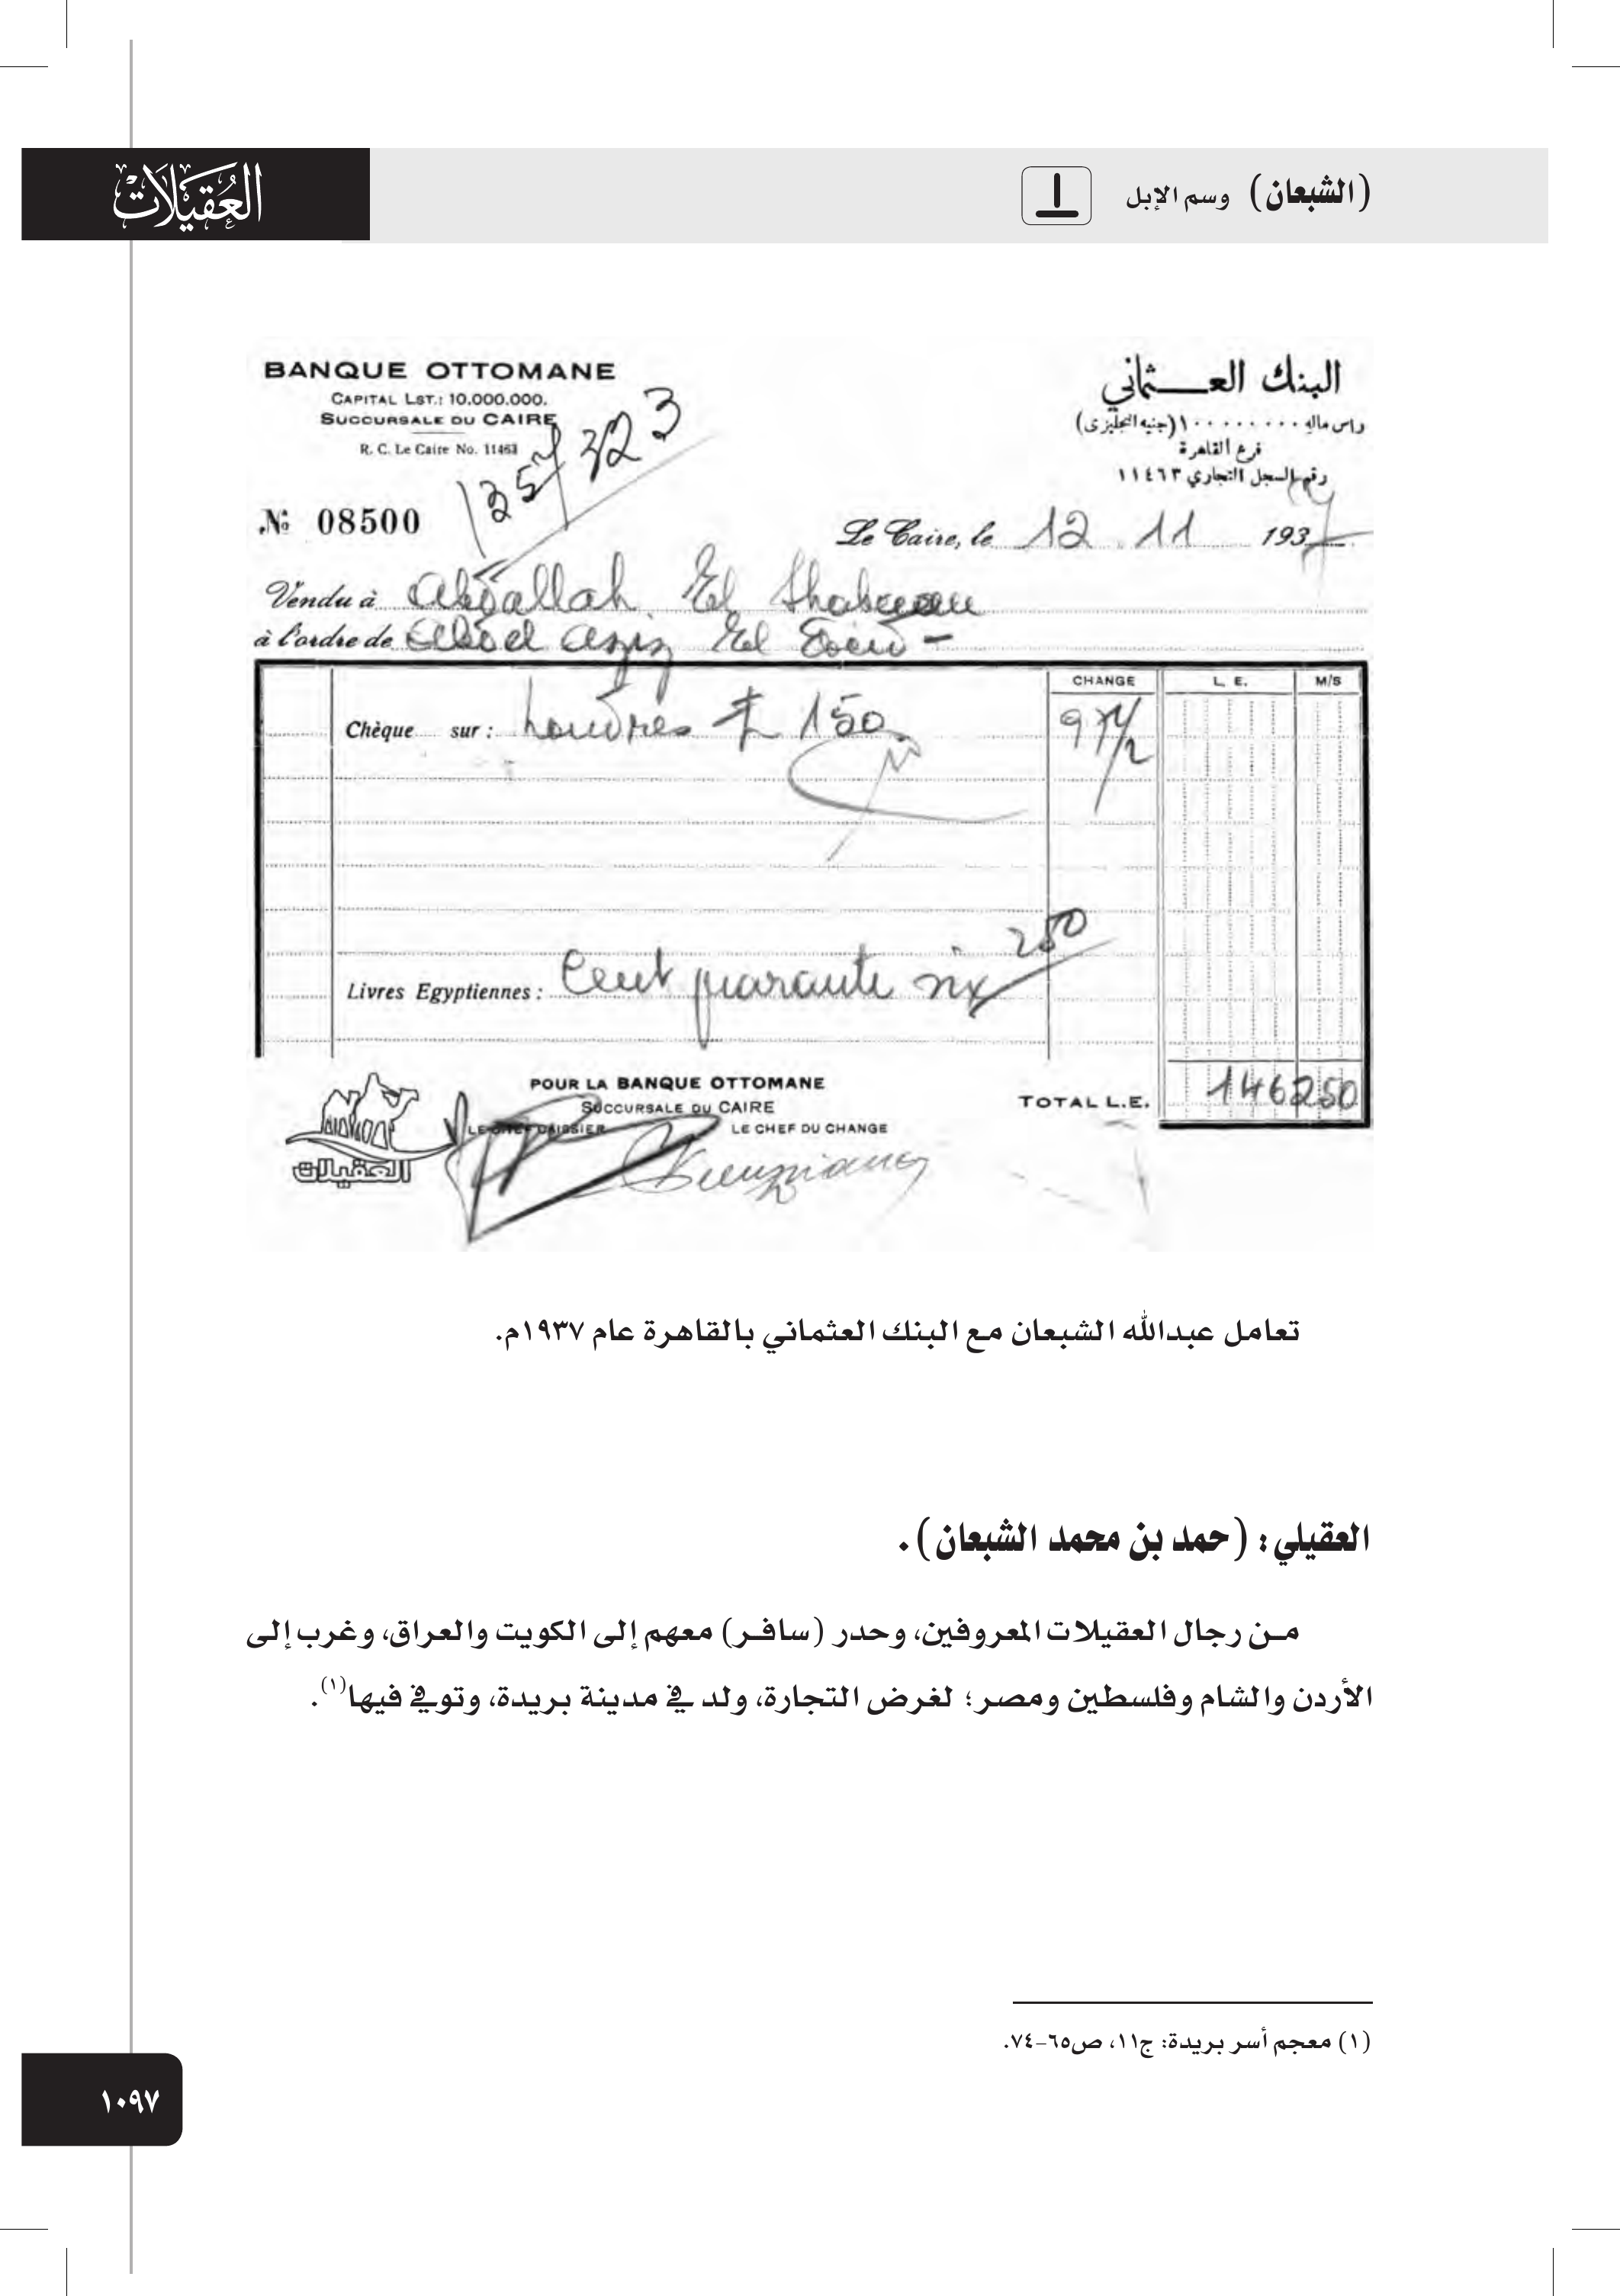 (الشبعان) وسم الإبل
العُقَيْلَات
BANQUE OTTOMANE
CAPITAL LST.: 10.000.000.
SUCCURSALE DU CAIRE
R. C. Le Caire No. 11463
البنك العـثماني
راس ماله ١٠٠٠٠٠٠٠ (جنيه انجليزى)
فرع القاهرة
رقم السجل التجاري ١١٤٦٣
№ 08500
Le Caire, le 12 . 11 1937
Vendu à Abdallah El Shabaan
à l'ordre de Abdel Aziz El
CHANGE L. E. M/S
Chèque sur : Londres £ 150 97 1/2
Livres Egyptiennes : Cent quarante six 250
POUR LA BANQUE OTTOMANE
SUCCURSALE DU CAIRE
LE CHEF CAISSIER LE CHEF DU CHANGE
TOTAL L.E. 146250
العقيلات
تعامل عبدالله الشبعان مع البنك العثماني بالقاهرة عام ١٩٣٧م.
العقيلي: (حمد بن محمد الشبعان).
مـن رجال العقيلات المعروفين، وحدر (سافـر) معهم إلى الكويت والعراق، وغرب إلى
الأردن والشام وفلسطين ومصر؛ لغرض التجارة، ولد في مدينة بريدة، وتوفي فيها(١).
(١) معجم أسر بريدة: ج١١، ص٦٥-٧٤.
١٠٩٧